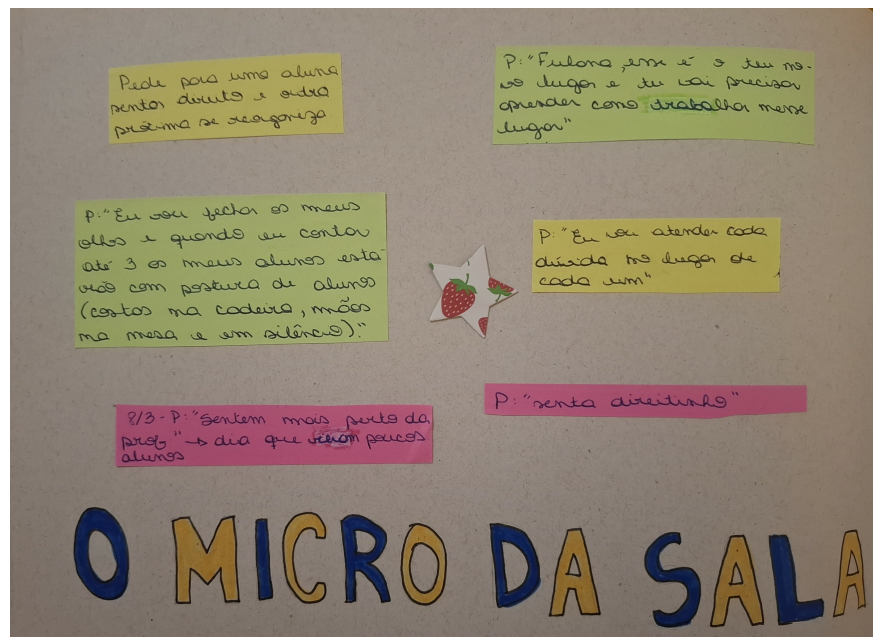 Pede para uma aluna
sentar direito e outra
próxima se reorganiza
P: "Fulana, esse é o teu no-
vo lugar e tu vai precisar
aprender como trabalhar nesse
lugar"
P: "Eu vou fechar os meus
olhos e quando eu contar
até 3 os meus alunos esta-
rão com postura de alunos
(costas na cadeira, mãos
na mesa e em silêncio)."
P: "Eu vou atender cada
dúvida no lugar de
cada um"
8/3 - P: "Sentem mais perto da
prof" → dia que vieram poucos
alunos
P: "senta direitinho"
O MICRO DA SALA